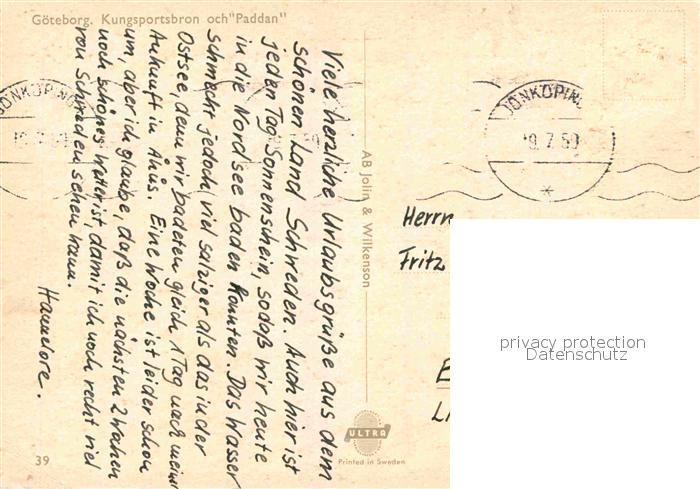 Göteborg. Kungsportsbron och "Paddan"
Viele herzliche Urlaubsgrüße aus dem
schönen Land Schweden. Auch hier ist
jeden Tag Sonnenschein, sodaß wir heute
in die Nordsee baden konnten. Das Wasser
schmeckt jedoch viel salziger als das in der
Ostsee, denn wir badeten gleich 1 Tag nach meiner
Ankunft in Åhus. Eine Woche ist leider schon
um, aber ich glaube, daß die nächsten 2 Wochen
noch schönes Wetter ist, damit ich noch recht viel
von Schweden sehen kann.
Hannelore.
AB Jolin & Wilkenson
JÖNKÖPING
19.7.59
JÖNKÖPING
19.7.59
Herrn
Fritz
privacy protection
Datenschutz
ULTRA
Printed in Sweden
39